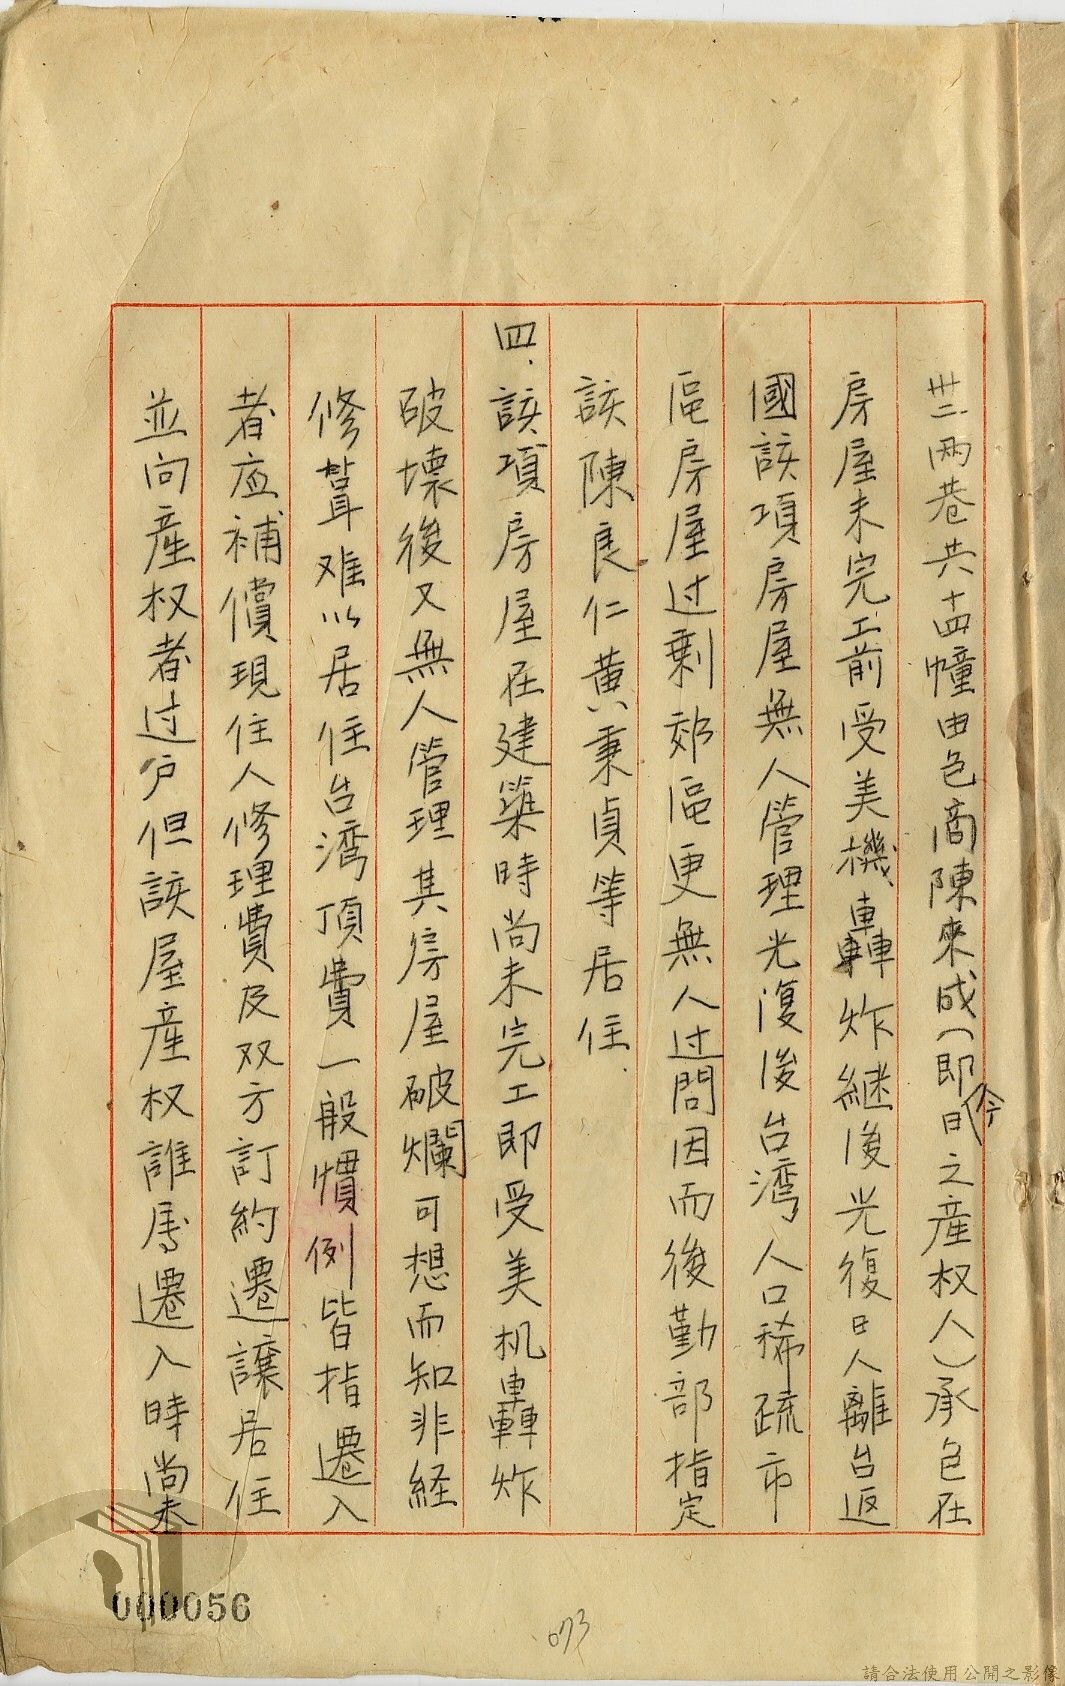 卅二兩巷共十四幢由包商陳來成(即今日之產权人)承包在
房屋未完工前受美機轟炸継後光復日人離台返
國該項房屋無人管理光復後台湾人口稀疏市
區房屋过剩郊區更無人过問因而後勤部指定
該陳良仁黄秉貞等居住.
四.該項房屋在建築時尚未完工即受美机轟炸
破壞後又無人管理其房屋破爛可想而知非経
修葺难以居住台湾頂費一般慣例皆指遷入
者应補償現住人修理費及双方訂約遷讓居住
並向產权者过户但該屋產权誰属遷入時尚未
000056
073
請合法使用公開之影像